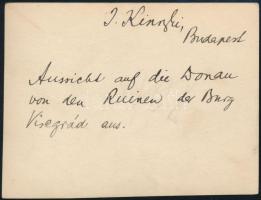 Budapest
Aussicht auf die Donau
von den Ruinen der Burg
Visegrád aus.